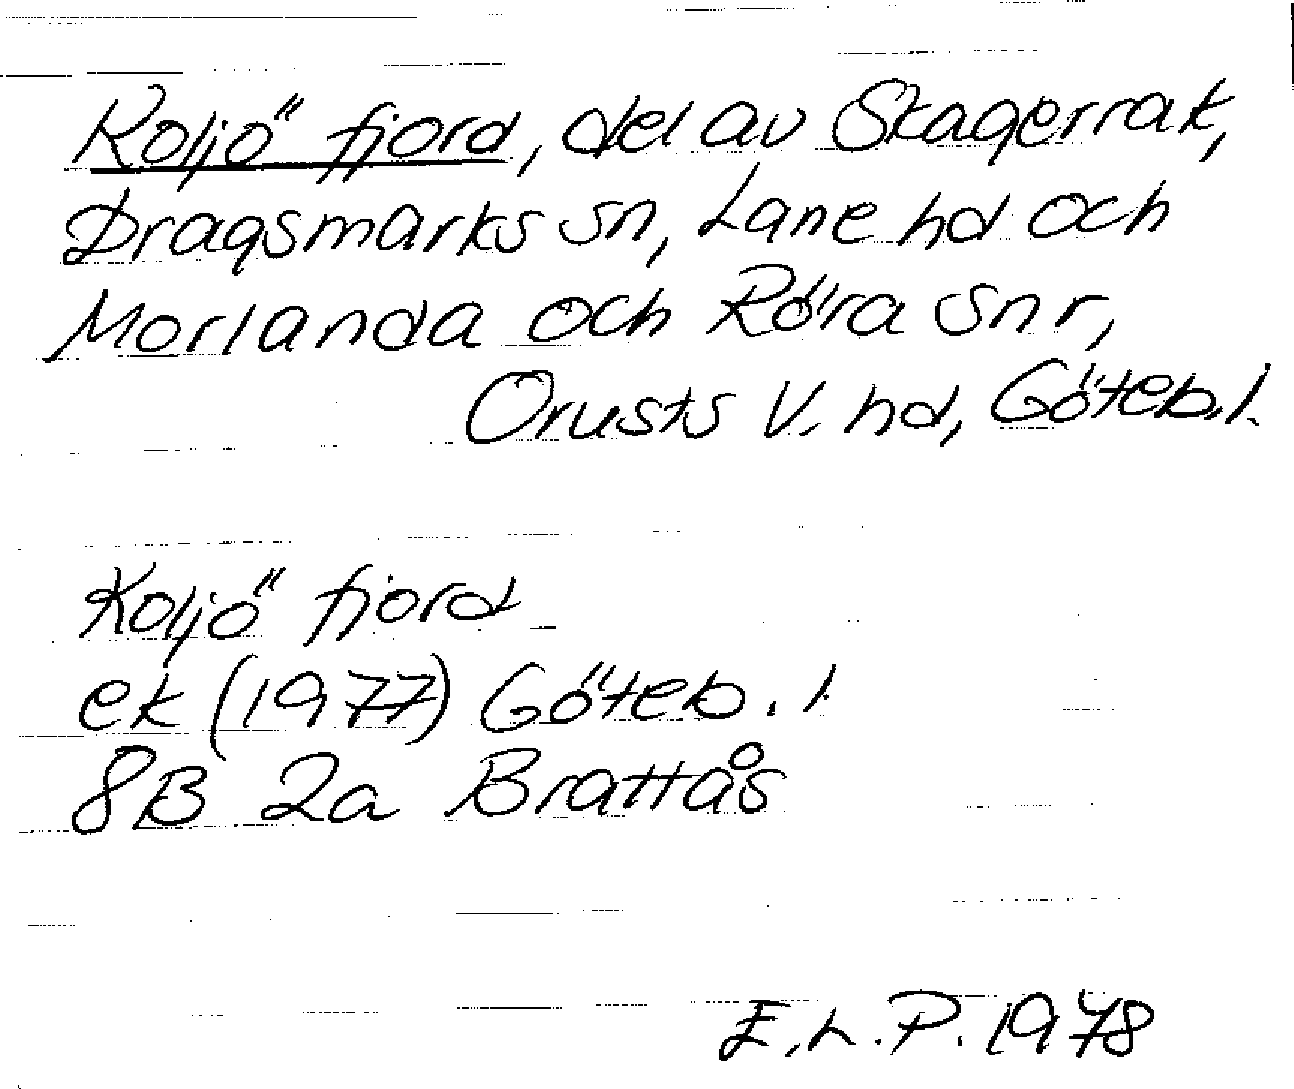 Koljö fjord, del av Skagerrak,
Dragsmarks sn, Lane hd och
Morlanda och Röra snr,
Orusts V. hd, Göteb.l.
Koljö fjord
ek (1977) Göteb. l.
8B 2a Brattås
E.L.P. 1978